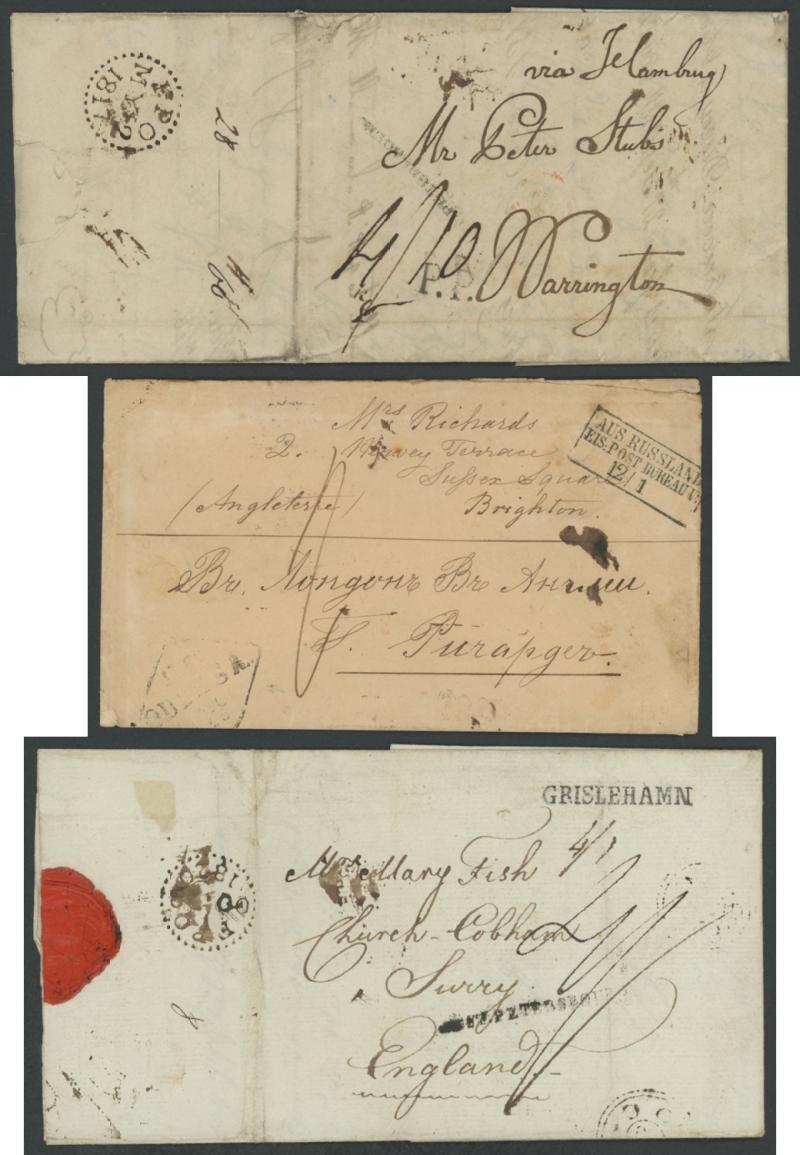 FPO
MY 2
1817
28
via Hambrug
Mr Peter Stubs
4/10
P.P.
Warrington
Mrs Richards
2. Terrace
Sussex Square
(Angleterre) Brighton.
AUS RUSSLAND
EIS. POST BUREAU
12/1
Въ Лондонъ Въ Англии.
Ричардсъ.
GRISLEHAMN
4/1
Mrs Mary Fish
Church-Cobham
Surry
ST. PETERSBOURG
England.
8